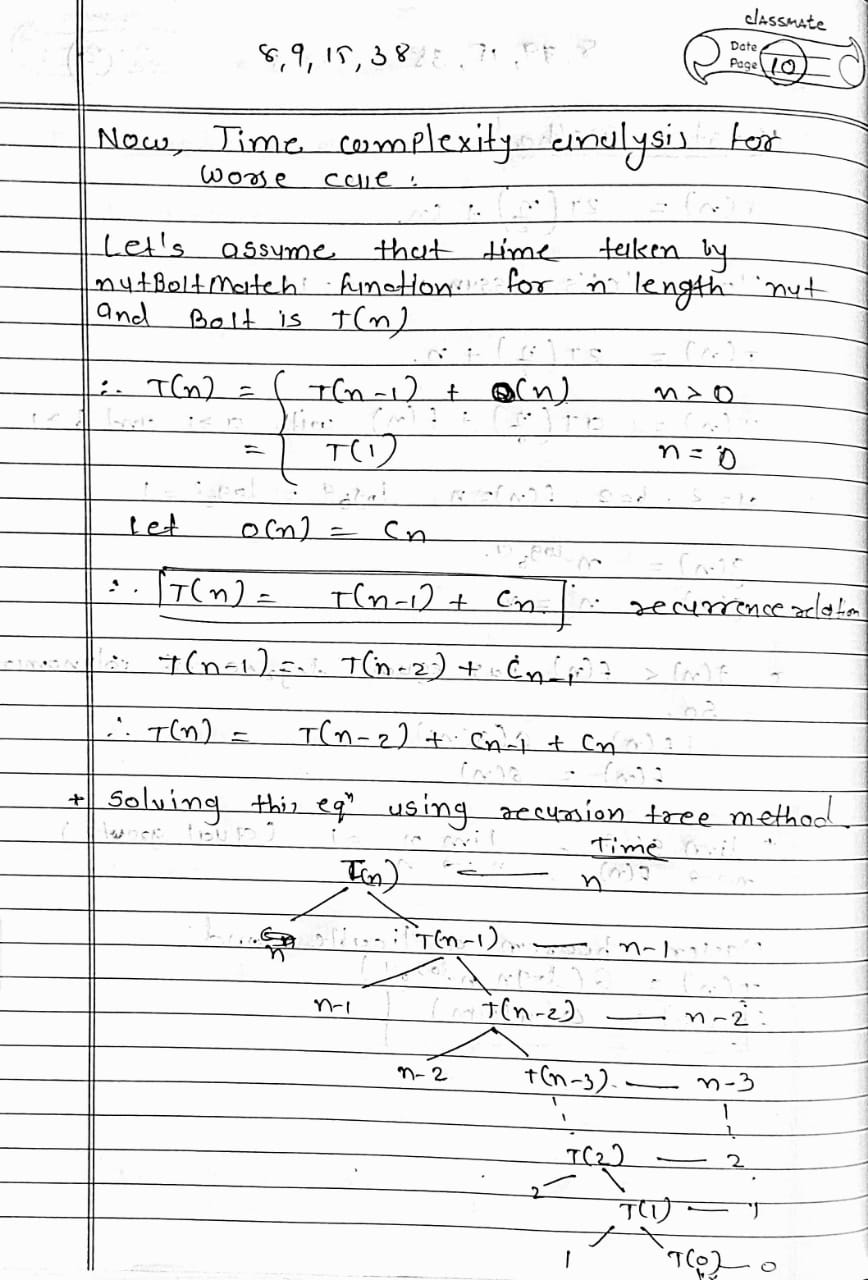 classmate
Date
Page 10
8, 9, 15, 38
Now, Time complexity analysis for
worse case :
Let's assume that time taken by
nutBoltMatch function for n length nut
and Bolt is T(n)
∴ T(n) = { T(n-1) + O(n) n > 0
= { T(1) n = 0
Let O(n) = Cn
∴ T(n) = T(n-1) + Cn recurrence relation
∴ T(n-1) = T(n-2) + Cn-1
∴ T(n) = T(n-2) + Cn-1 + Cn
+ Solving this eqn using recursion tree method.
Time
T(n) — n
n T(n-1) — n-1
n-1 T(n-2) — n-2
n-2 T(n-3) — n-3
T(2) — 2
2 T(1) — 1
1 T(0) — 0